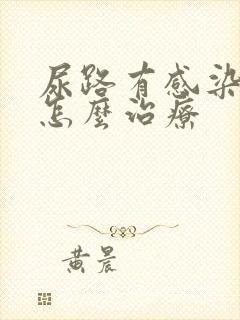 尿路有感染
怎麼治療
黃晨